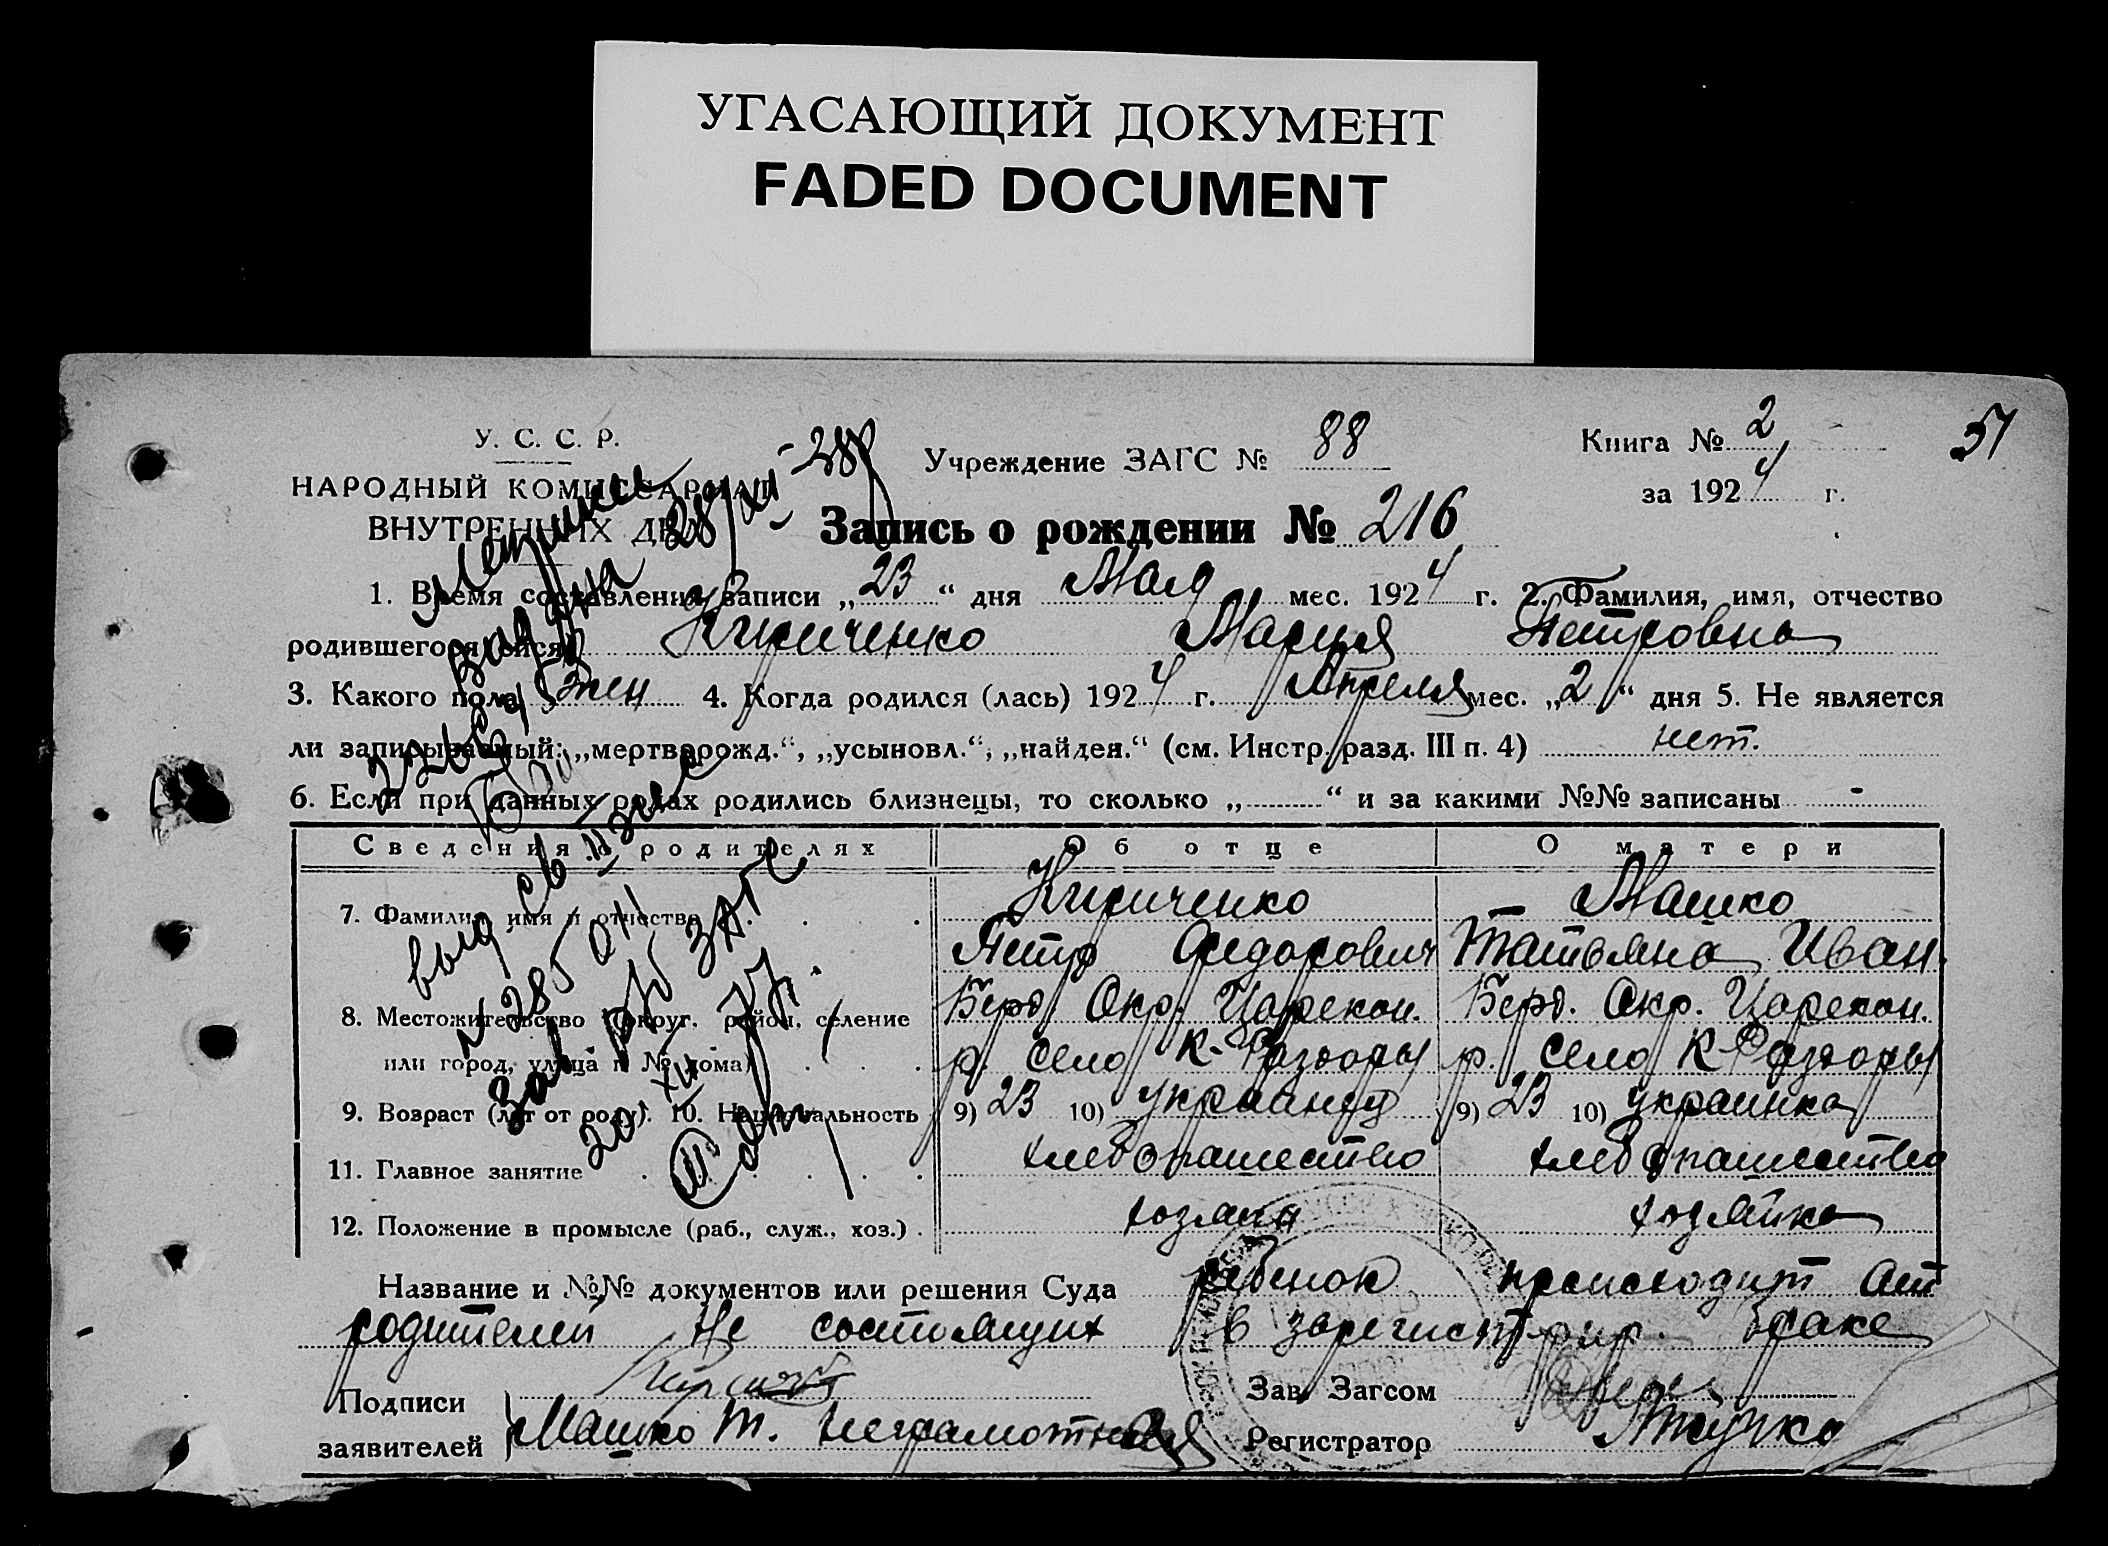 УГАСАЮЩИЙ ДОКУМЕНТ
FADED DOCUMENT
У. С. С. Р.
НАРОДНЫЙ КОМИССАРИАТ
ВНУТРЕННИХ ДЕЛ
Учреждение ЗАГС № 88
Книга № 2
за 1924 г.
51
Запись о рождении № 216
1. Время составления записи „23“ дня Мая мес. 1924 г. 2. Фамилия, имя, отчество
родившегося(ейся) Кириченко Мария Петровна
3. Какого пола жен 4. Когда родился (лась) 1924 г. Апреля мес. „2“ дня 5. Не является
ли записываемый: „мертворожд.“, „усыновл.“, „найден.“ (см. Инстр. разд. III п. 4) нет.
6. Если при данных родах родились близнецы, то сколько „ “ и за какими №№ записаны -
Сведения о родителях Об отце О матери
7. Фамилия, имя и отчество Кириченко Машко
Петр Федорович Татьяна Иван.
8. Местожительство (округ, район, селение Берд. Окр. Царекон. Берд. Окр. Царекон.
или город, улица и № дома) р. село К-Раздоры р. село К-Раздоры
9. Возраст (лет от роду). 10. Национальность 9) 23 10) украинец 9) 23 10) украинка
11. Главное занятие хлебопашество хлебопашество
12. Положение в промысле (раб., служ., хоз.) хозяин хозяйка
Название и №№ документов или решения Суда ребенок происходит от
родителей не состоящих в зарегистрир. браке
Подписи
заявителей Машко Т. неграмотная
Зав. Загсом
Регистратор
Метрики
выдана 28/XI-28
выд. св.
№ 285
Зав. ЗАГС
20/XII